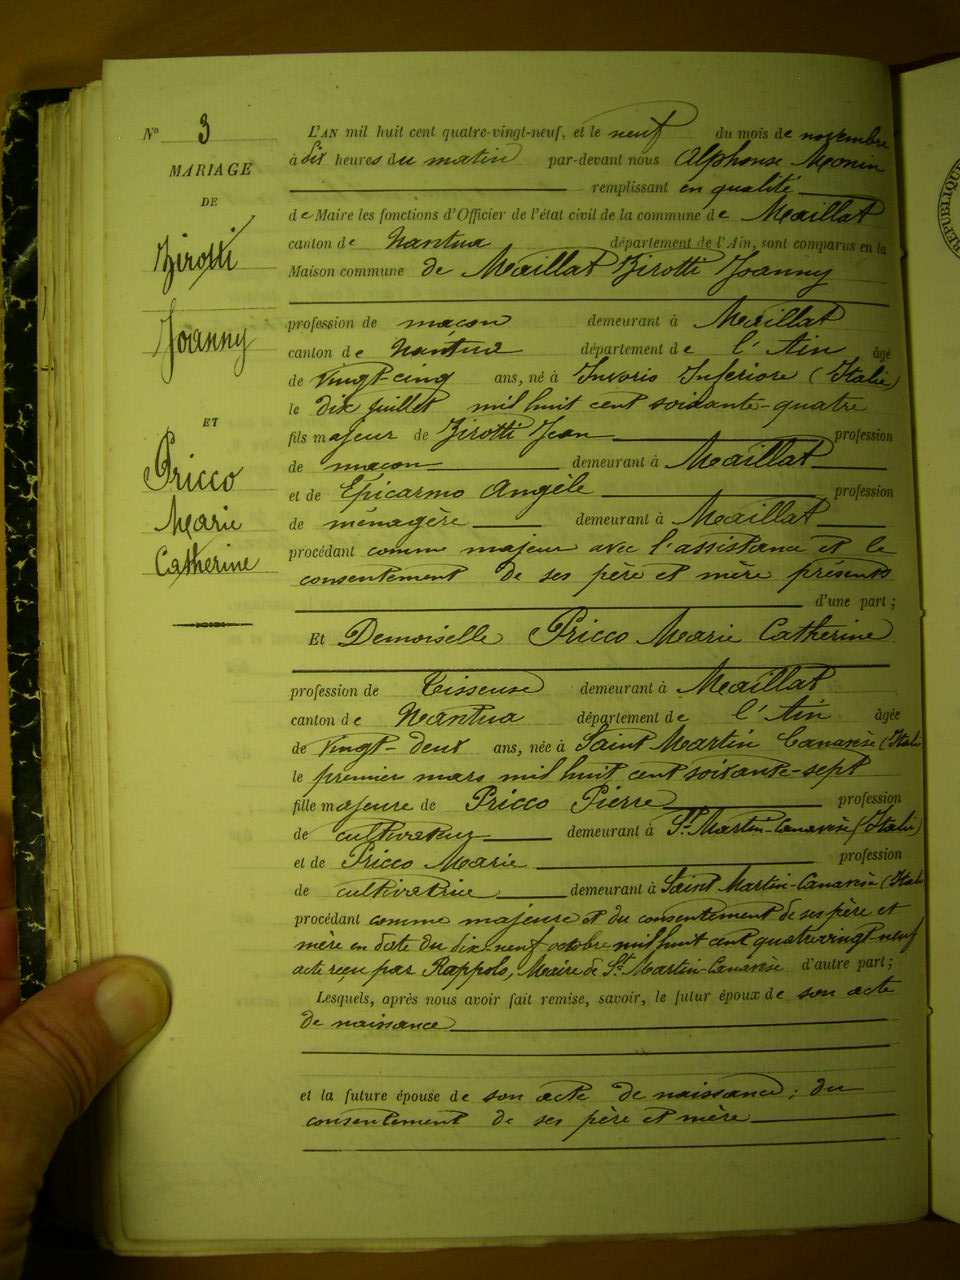 N° 3
MARIAGE
DE
Zirotti
Joanny
ET
Pricco
Marie
Catherine
L'AN mil huit cent quatre-vingt-neuf, et le neuf du mois de novembre
à dix heures du matin par-devant nous Alphonse Monin
remplissant en qualité
de Maire les fonctions d'Officier de l'état civil de la commune de Maillat
canton de Nantua département de l'Ain, sont comparus en la
Maison commune de Maillat Zirotti Joanny
profession de maçon demeurant à Maillat
canton de Nantua département de l'Ain âgé
de vingt-cinq ans, né à Invorio Inferiore (Italie)
le dix juillet mil huit cent soixante-quatre
fils majeur de Zirotti Jean profession
de maçon demeurant à Maillat
et de Epicarmo Angèle profession
de ménagère demeurant à Maillat
procédant comme majeur avec l'assistance et le
consentement de ses père et mère présents
d'une part ;
Et Demoiselle Pricco Marie Catherine
profession de Tisseuse demeurant à Maillat
canton de Nantua département de l'Ain âgée
de vingt-deux ans, née à Saint Martin Canavèse (Itali
le premier mars mil huit cent soixante-sept
fille majeure de Pricco Pierre profession
de cultivateur demeurant à St Martin-Canavèse (Italie)
et de Pricco Marie profession
de cultivatrice demeurant à Saint Martin-Canavèse (Itali
procédant comme majeure et du consentement de ses père et
mère en date du dix-neuf octobre mil huit cent quatre vingt neuf
acte reçu par Rappolo, Maire de St Martin-Canavèse d'autre part ;
Lesquels, après nous avoir fait remise, savoir, le futur époux de son acte
de naissance
et la future épouse de son acte de naissance ; du
consentement de ses père et mère